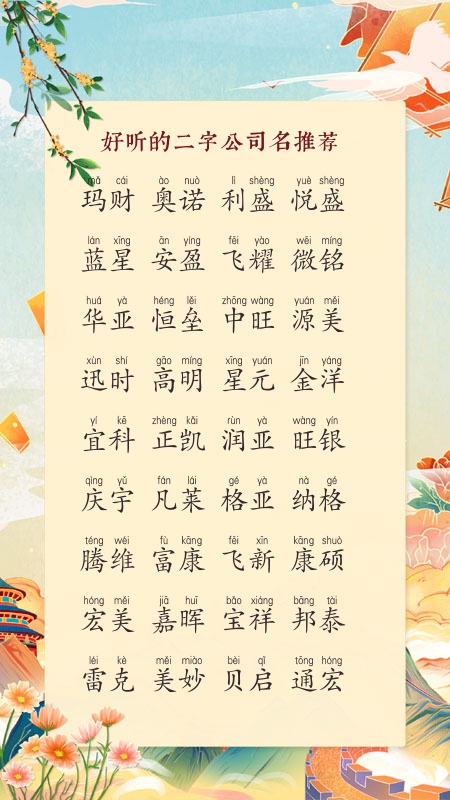 好听的二字公司名推荐
mǎ cái ào nuò lì shèng yuè shèng
玛财 奥诺 利盛 悦盛
lán xīng ān yíng fēi yào wēi míng
蓝星 安盈 飞耀 微铭
huá yà héng lěi zhōng wàng yuán měi
华亚 恒垒 中旺 源美
xùn shí gāo míng xīng yuán jīn yáng
迅时 高明 星元 金洋
yí kē zhèng kǎi rùn yà wàng yín
宜科 正凯 润亚 旺银
qìng yǔ fán lái gé yà nà gé
庆宇 凡莱 格亚 纳格
téng wéi fù kāng fēi xīn kāng shuò
腾维 富康 飞新 康硕
hóng měi jiā huī bǎo xiáng bāng tài
宏美 嘉晖 宝祥 邦泰
léi kè měi miào bèi qǐ tōng hóng
雷克 美妙 贝启 通宏